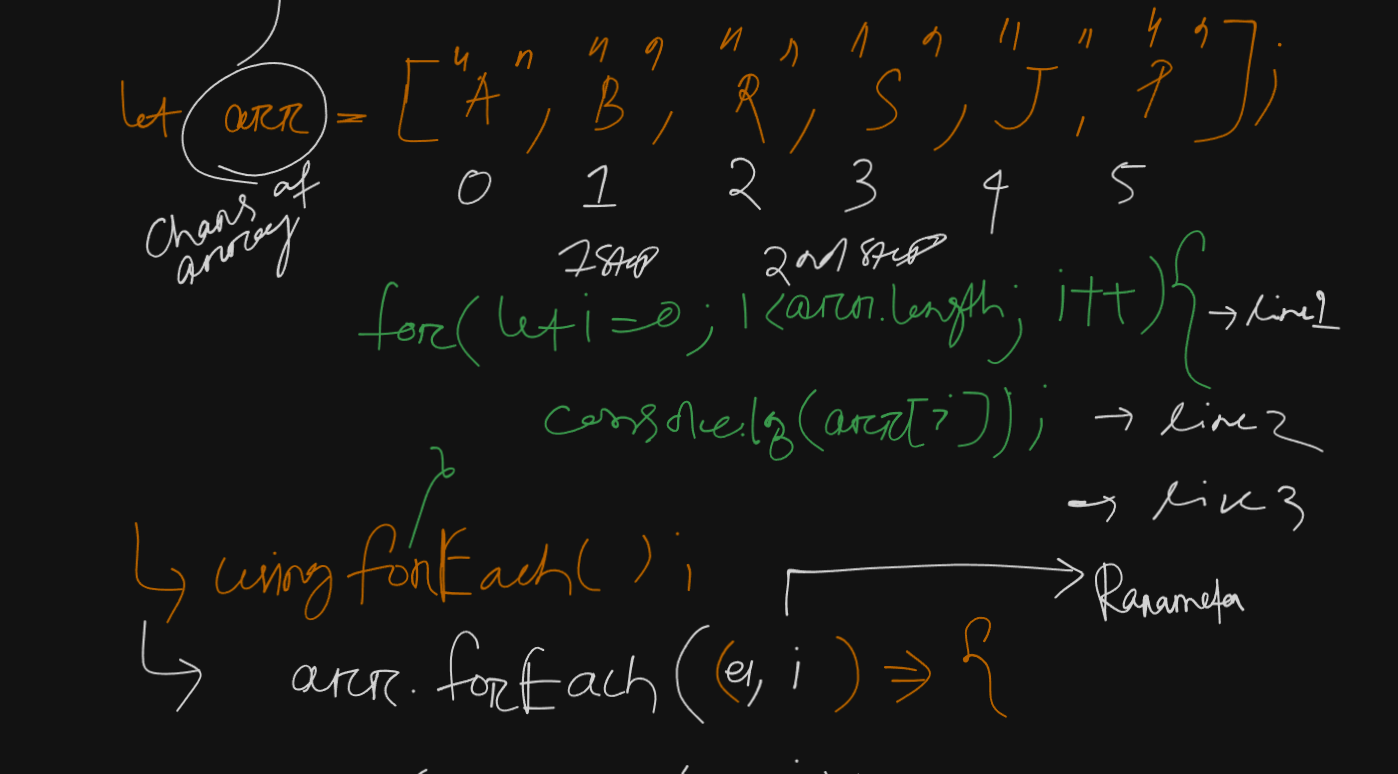 let arr = ["A", "B", "R", "S", "J", "P"];
0 1 2 3 4 5
Chars of array
1 step 2nd step
for(let i=0; i<arr.length; i++){ → line1
console.log(arr[i]); → line2
→ line 3
↳ using forEach();
Parameter
↳ arr.forEach((el, i) => {